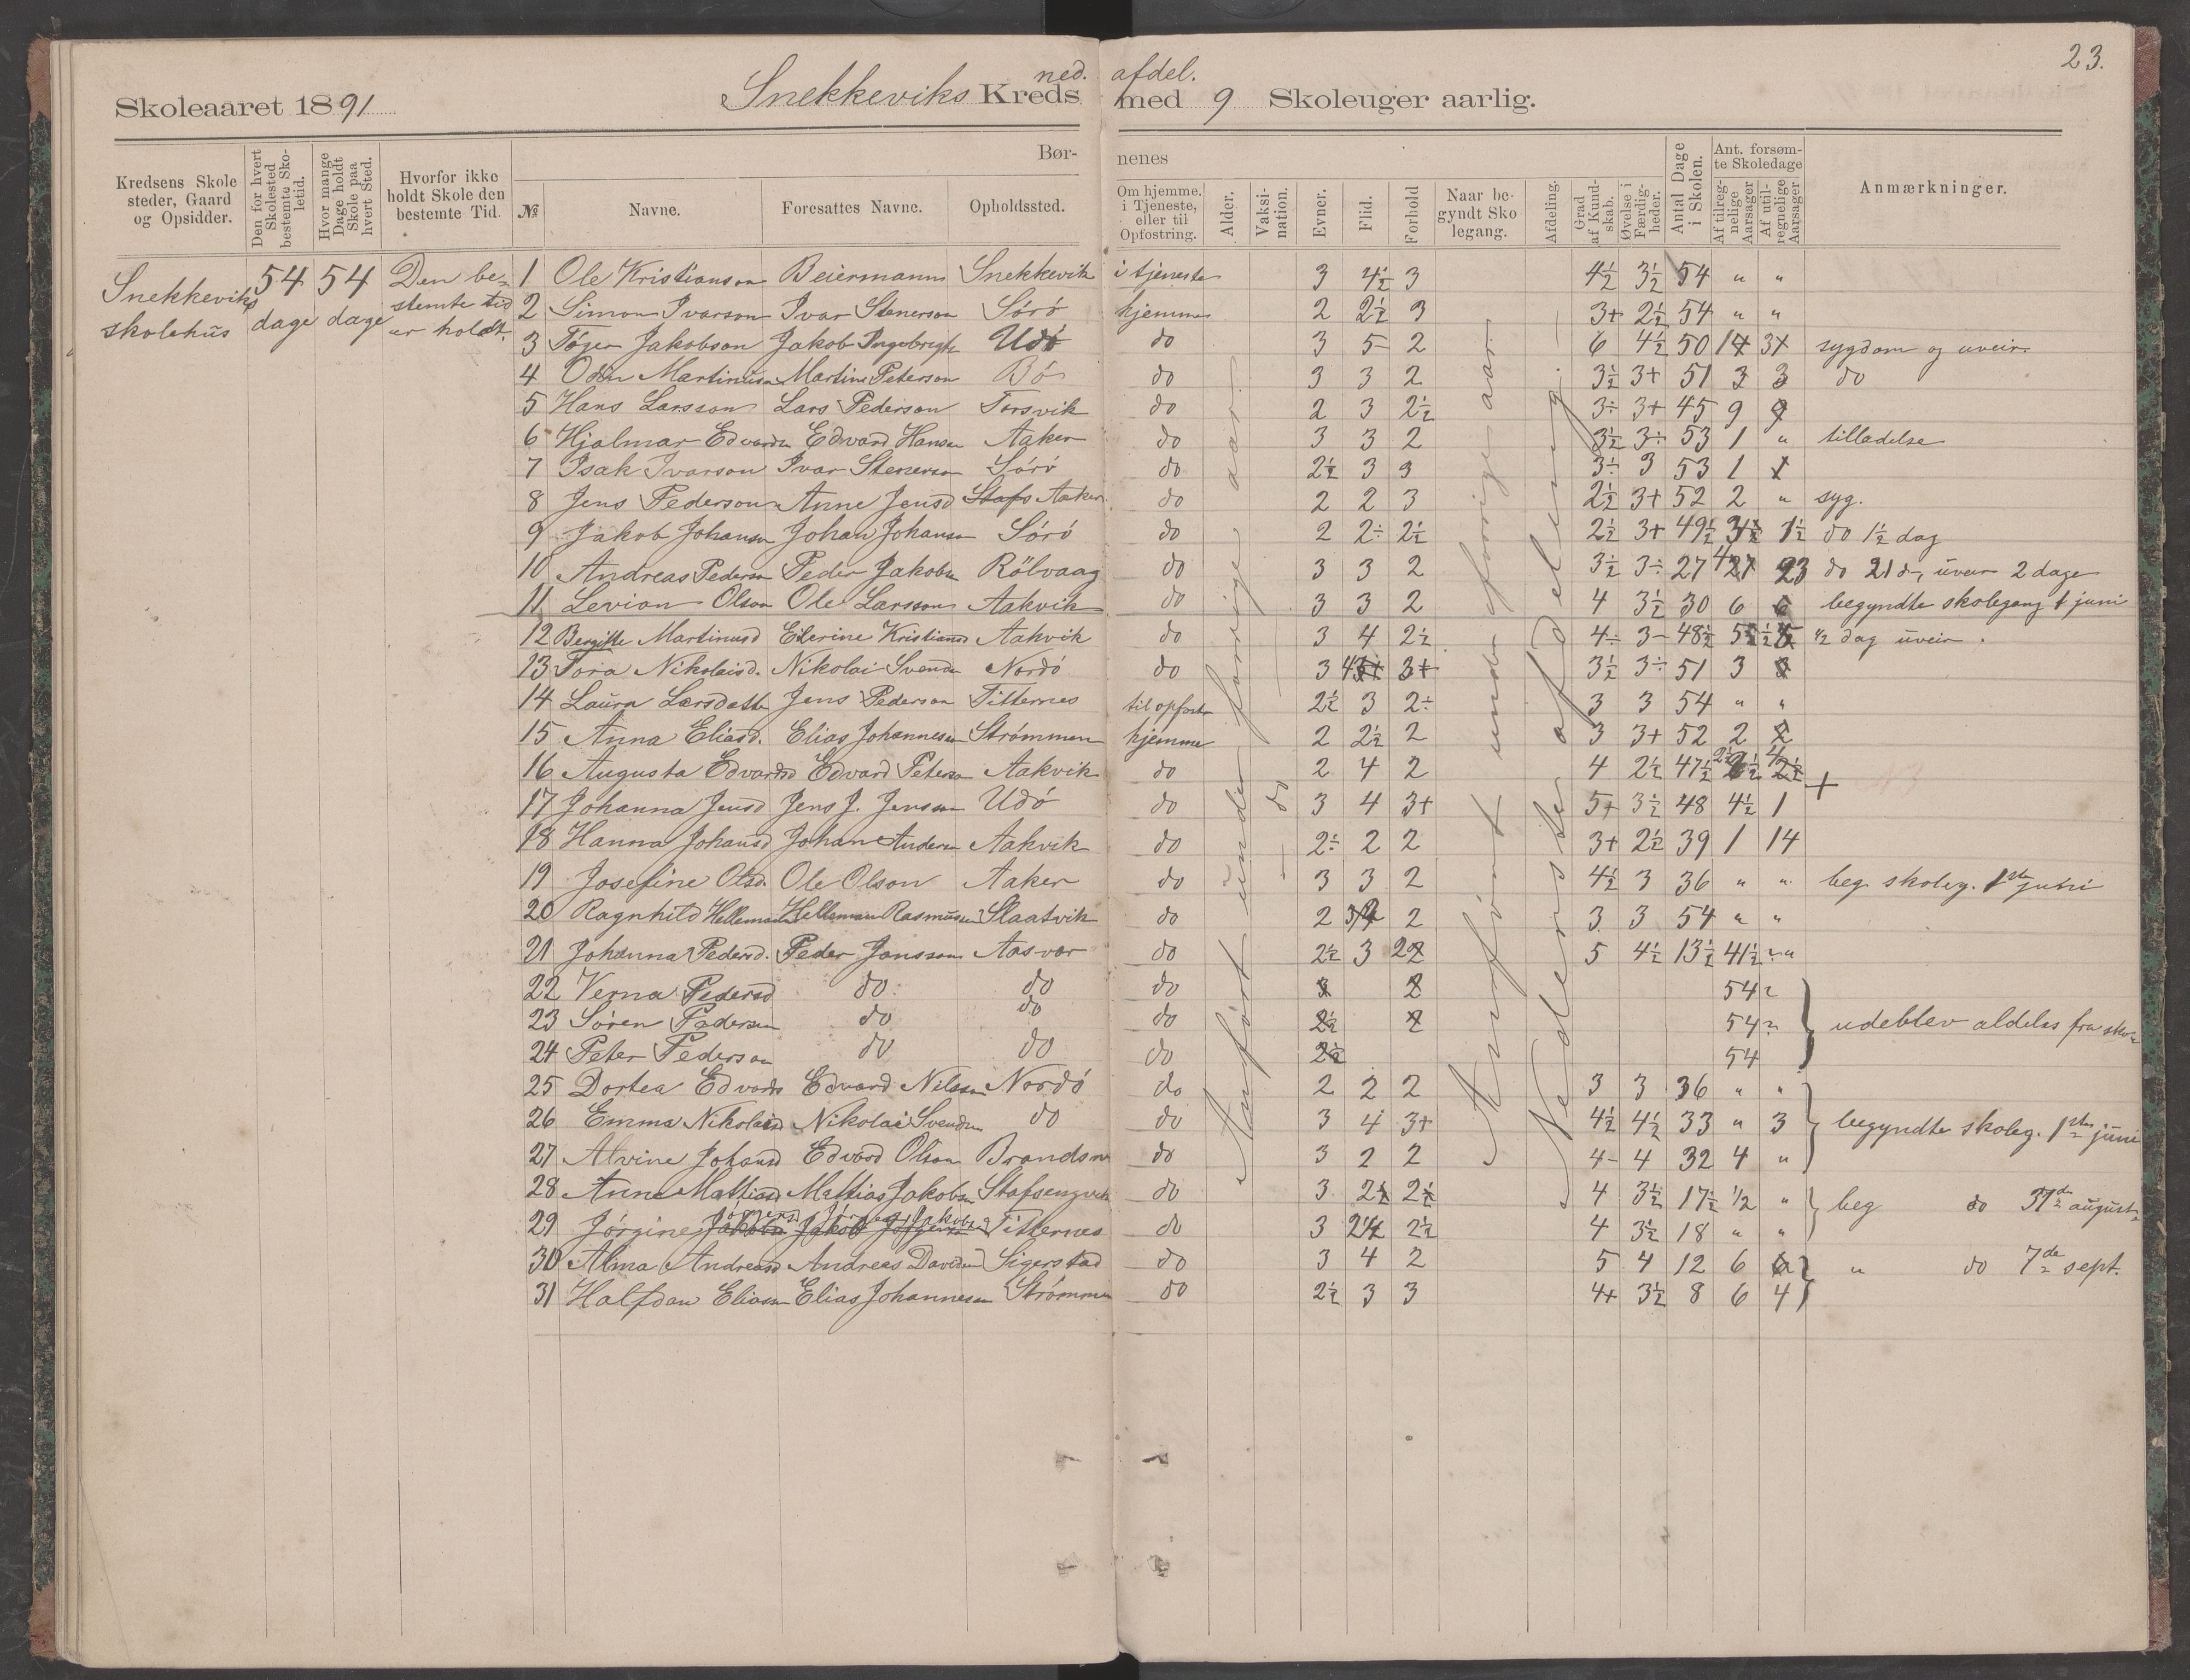 23.
ned. afdel.
Skoleaaret 1891 Snekkeviks Kreds med 9 Skoleuger aarlig.
Kredsens Skolesteder, Gaard og Opsidder. Den for hvert Skolested bestemte Skoletid. Hvor mange Dage holdt Skole paa hvert Sted. Hvorfor ikke holdt Skole den bestemte Tid. Børnenes Ant. forsømte Skoledage Anmærkninger.
№ Navne. Foresattes Navne. Opholdssted. Om hjemme. i Tjeneste, eller til Opfostring. Alder. Vaksination. Evner. Flid. Forhold Naar begyndt Skolegang. Afdeling. Grad af Kundskab. Øvelse i Færdigheder. Antal Dage i Skolen. Af tilregnelige Aarsager Af utilregnelige Aarsager
Snekkeviks skolehus 54 dage 54 dage Den bestemte tid er holdt.
Anført under forrige aar.
do
Anført under forrige aar
Nederste afdeling.
1 Ole Kristianson Beiermann Snekkevik i tjeneste 3 4½ 3 4½ 3½ 54 " "
2 Simon Ivarson Ivar Stenerson Sörö hjemme 2 2½ 3 3+ 2½ 54 " "
3 Töger Jakobson Jakob Ingebrigts Udö do 3 5- 2 6 4½ 50 1 3 sygdom og uveir
4 Odin Martinusen Martin Peterson Bö do 3 3 2 3½ 3+ 51 3 3 do
5 Hans Larsson Lars Pederson Torsvik do 2 3 2½ 3÷ 3+ 45 9 9
6 Hjalmar Edvardsn Edvard Hansen Aaker do 3 3 2 3½ 3÷ 53 1 " tilladelse
7 Isak Ivarson Ivar Stenerson Sörö do 2½ 3 3 3÷ 3 53 1 1
8 Jens Pederson Anne Jensd Stafs Aaker do 2 2 3 2½ 3+ 52 2 " syg.
9 Jakob Johansn Johan Johansn Sörö do 2 2÷ 2½ 2½ 3+ 49½ 3½ 1½ do 1½ dag
10 Andreas Pedersn Peder Jakobsn Rölvaag do 3 3 2 3½ 3÷ 27 4 23 do 21 d, uveir 2 dage
11 Levion Olson Ole Larsson Aakvik do 3 3 2 4 3½ 30 6 6 begyndte skolegang 1 juni
12 Bergitte Martinusd Elerine Kristiansd Aakvik do 3 4 2½ 4÷ 3- 48½ 5 ½ ½ dag uveir.
13 Tora Nikolaisd. Nikolai Svends Nordö do 3 4 3+ 3½ 3÷ 51 3 3
14 Laura Larsdatte Jens Pederson Titternes til opfostr 2½ 3 2÷ 3 3 54 " "
15 Anna Eliasd. Elias Johannesen Strömmen hjemme 2 2½ 2 3 3+ 52 2 2
16 Augusta Edvardsd Edvard Peterson Aakvik do 2 4 2 4 2½ 47½ 2½ 4
17 Johanna Jensd Jens J. Jensson Udö do 3 4 3+ 5+ 3½ 48 4½ 1
18 Hanna Johansd Johan Andersn Aakvik do 2÷ 2 2 3+ 2½ 39 1 14
19 Josefine Olsd. Ole Olson Aaker do 3 3 2 4½ 3 36 " " beg. skoleg. 1ste juni
20 Ragnhild Hellemann Hellemann Rasmussen Slaatvik do 2 3 2 3 3 54 " "
21 Johanna Pedersd. Peder Jansson Aasvær do 2½ 3 2 5 4½ 13½ 41½ "
22 Verna Pedersd do do do 3 2 54 "
23 Sören Pedersen do do do 2½ 2 54 " udeblev aldeles fra skolen
24 Peter Pederson do do do 2½ 54
25 Dortea Edvards Edvard Nilsson Nordö do 2 2 2 3 3 36 " "
26 Emma Nikolaisd Nikolai Svendsn do do 3 4 3+ 4½ 4½ 33 " 3 begyndte skoleg. 1ste juni
27 Alvine Johansd Edvard Olson Brandsn do 3 2 2 4- 4 32 4 "
28 Anna Mattiasd Mattias Jakobsn Stafsengvik do 3 2½ 2½ 4 3½ 17½ ½ " beg do 31de august
29 Jörgine Jörgensd Jörgen Jakobsn Titternes do 3 2 2½ 4 3½ 18 " "
30 Alma Andreasd Andreas Davidsen Sigerstad do 3 4 2 5 4 12 6 6 " do 7de sept.
31 Halfdan Eliasn Elias Johannesen Strömmen do 2½ 3 3 4+ 3½ 8 6 4